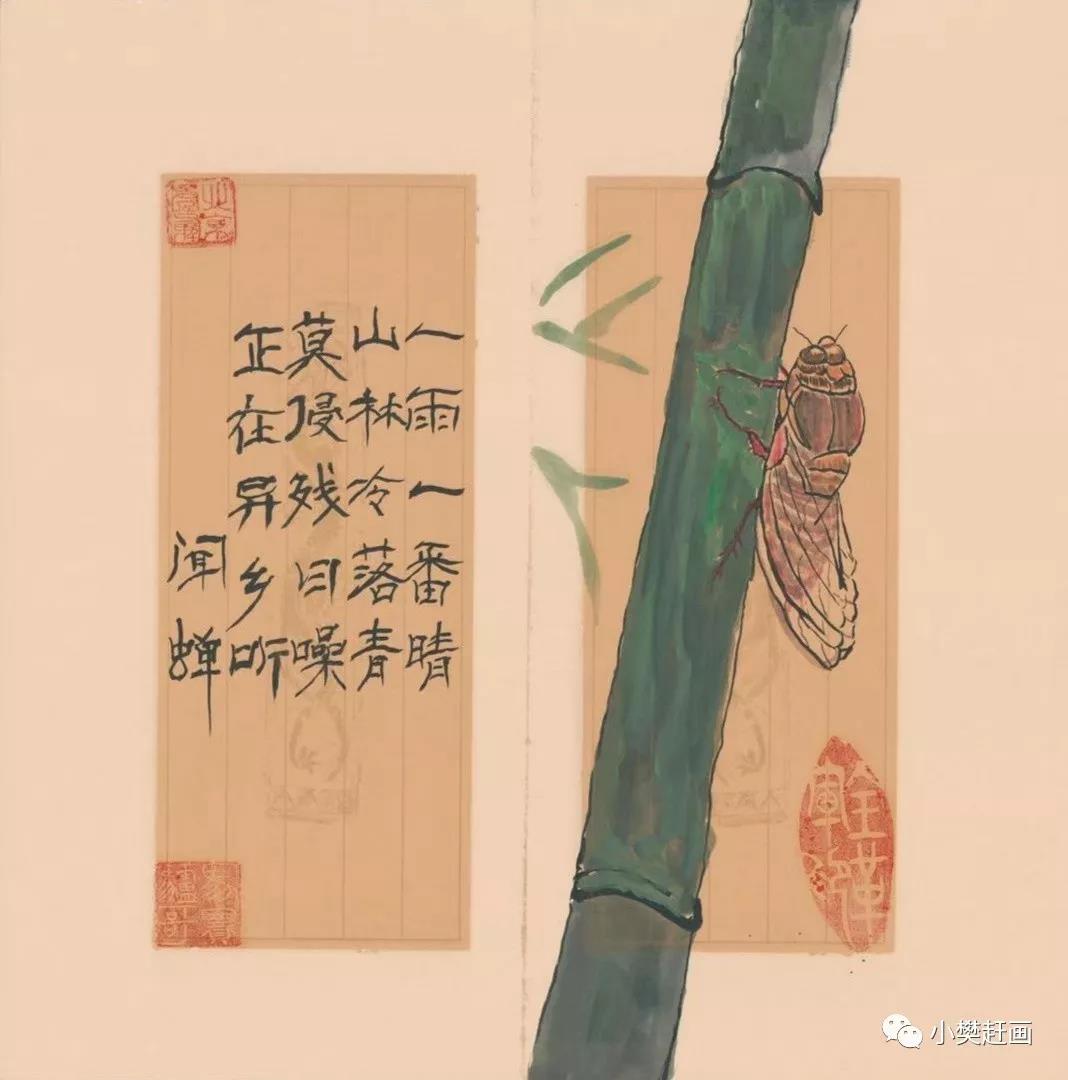 一雨一番晴
山林冷落青
莫侵残日噪
正在异乡听
闻蝉
小樊赶画